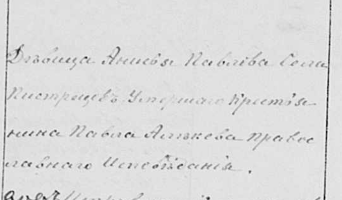 Дѣвица Анисья Павлова Села
Пистрецевъ Умершаго Крестья-
нина Павла Алѣкова Правос
лавнаго Исповѣданія.